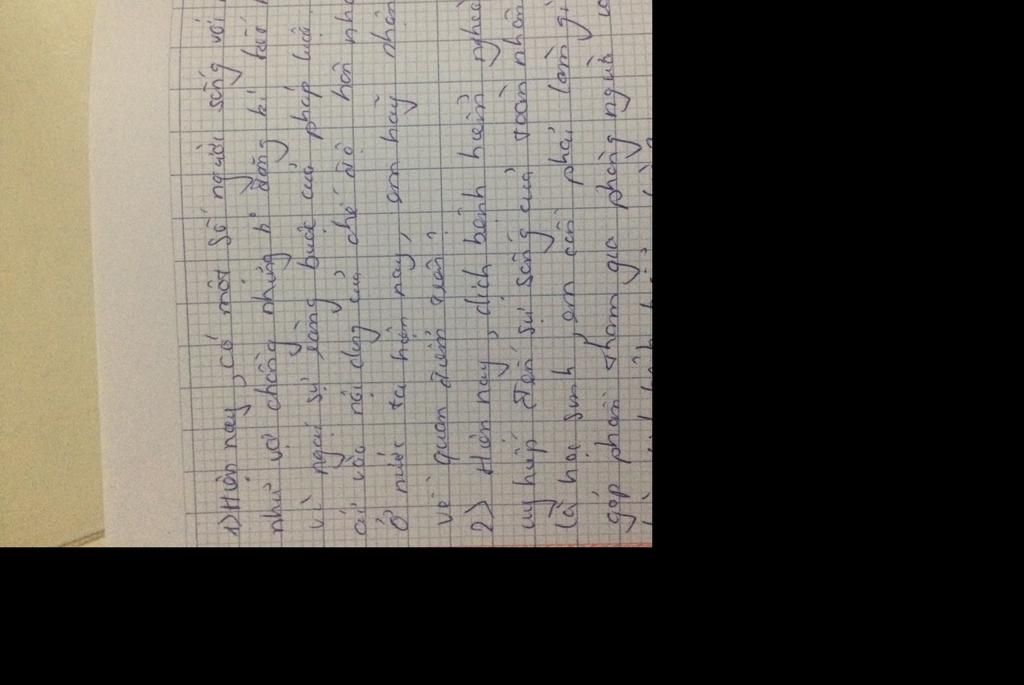 1) Hiện nay, có một số người sống với
như vợ chồng nhưng k° đăng kí kết
vì ngại sự ràng buộc của pháp luật
vào nội dung của chế độ hôn nhâ
ở nước ta hiện nay, em hãy nhận
về quan điểm trên?
2) Hiện nay, dịch bệnh hiểm nghèo
uy hiếp đến sự sống của toàn nhân
là học sinh, em cần phải làm gì
góp phần tham gia phòng ngừa